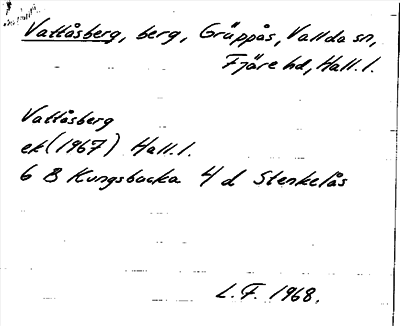 Vattåsberg, berg, Gräppås, Vallda sn,
Fjäre hd, Hall. l.
Vattåsberg
ek (1967) Hall. l.
6 B Kungsbacka 4 d Stenkelås
L. F. 1968.